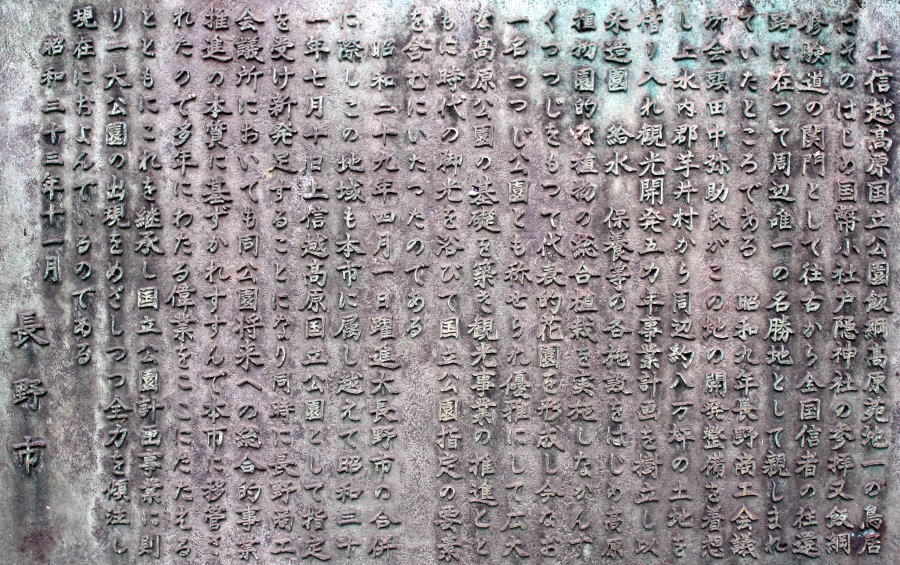 上信越高原国立公園飯綱高原苑地一の鳥居
はそのはじめ国幣小社戸隠神社の参拝又飯綱
修験道の関門として往古から全国信者の往還
路に在つて周辺唯一の名勝地として親しまれ
ていたところである　昭和九年長野商工会議
所会頭田中弥助氏がこの地の開発整備を着想
し上水内郡芋井村から周辺約八万坪の土地を
借り入れ観光開発五カ年事業計画を樹立し以
来造園　給水　保養等の各施設をはじめ高原
植物園的な植物の総合植栽を実施しなかんず
くつつじをもつて代表的花園を形成し今なお
一名つつじ公園とも称せられ優雅にして広大
な高原公園の基礎を築き観光事業の推進とと
もに時代の脚光を浴びて国立公園指定の要素
を含むにいたつたのである
昭和二十九年四月一日躍進大長野市の合併
に際しこの地域も本市に属し越えて昭和三十
一年七月十日上信越高原国立公園として指定
を受け新発足することになり同時に長野商工
会議所においても同公園将来への総合的事業
推進の本質に基ずかれすすんで本市に移管さ
れたので多年にわたる偉業をここにたたえる
とともにこれを継承し国立公園計画事業に則
り一大公園の出現をめざしつつ全力を傾注し
現在におよんでいるのである
昭和三十三年十一月
長野市